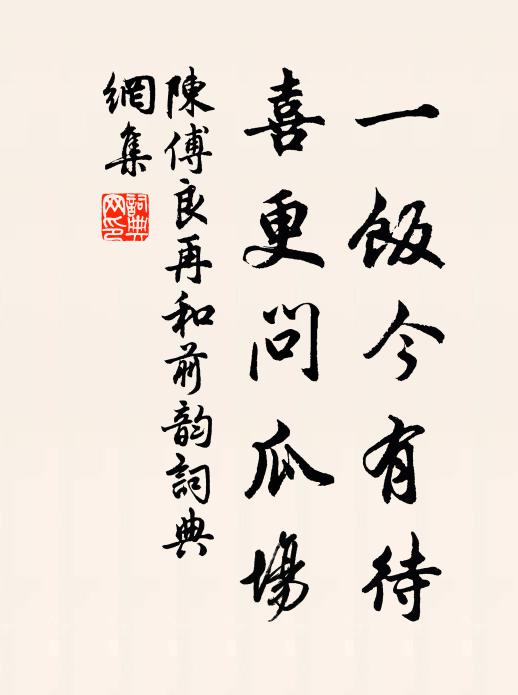 一飯今有待
喜更問瓜場
陳傅良再和前韵詞典
網集
詞典
网印